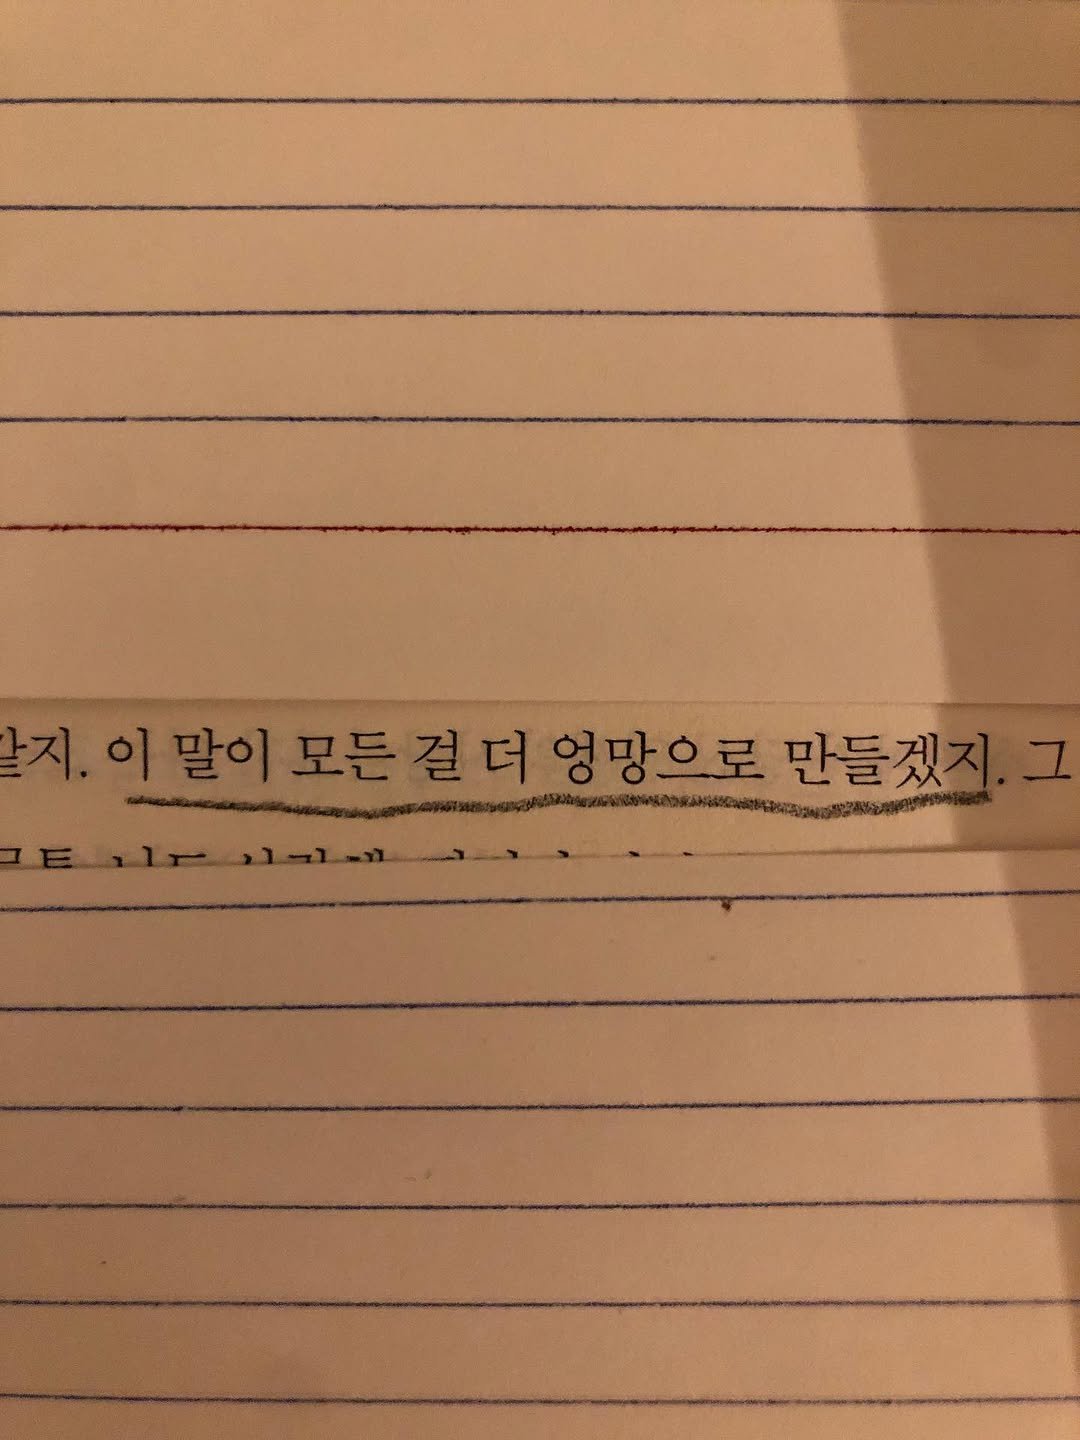 같지. 이 말이 모든 걸 더 엉망으로 만들겠지. 그